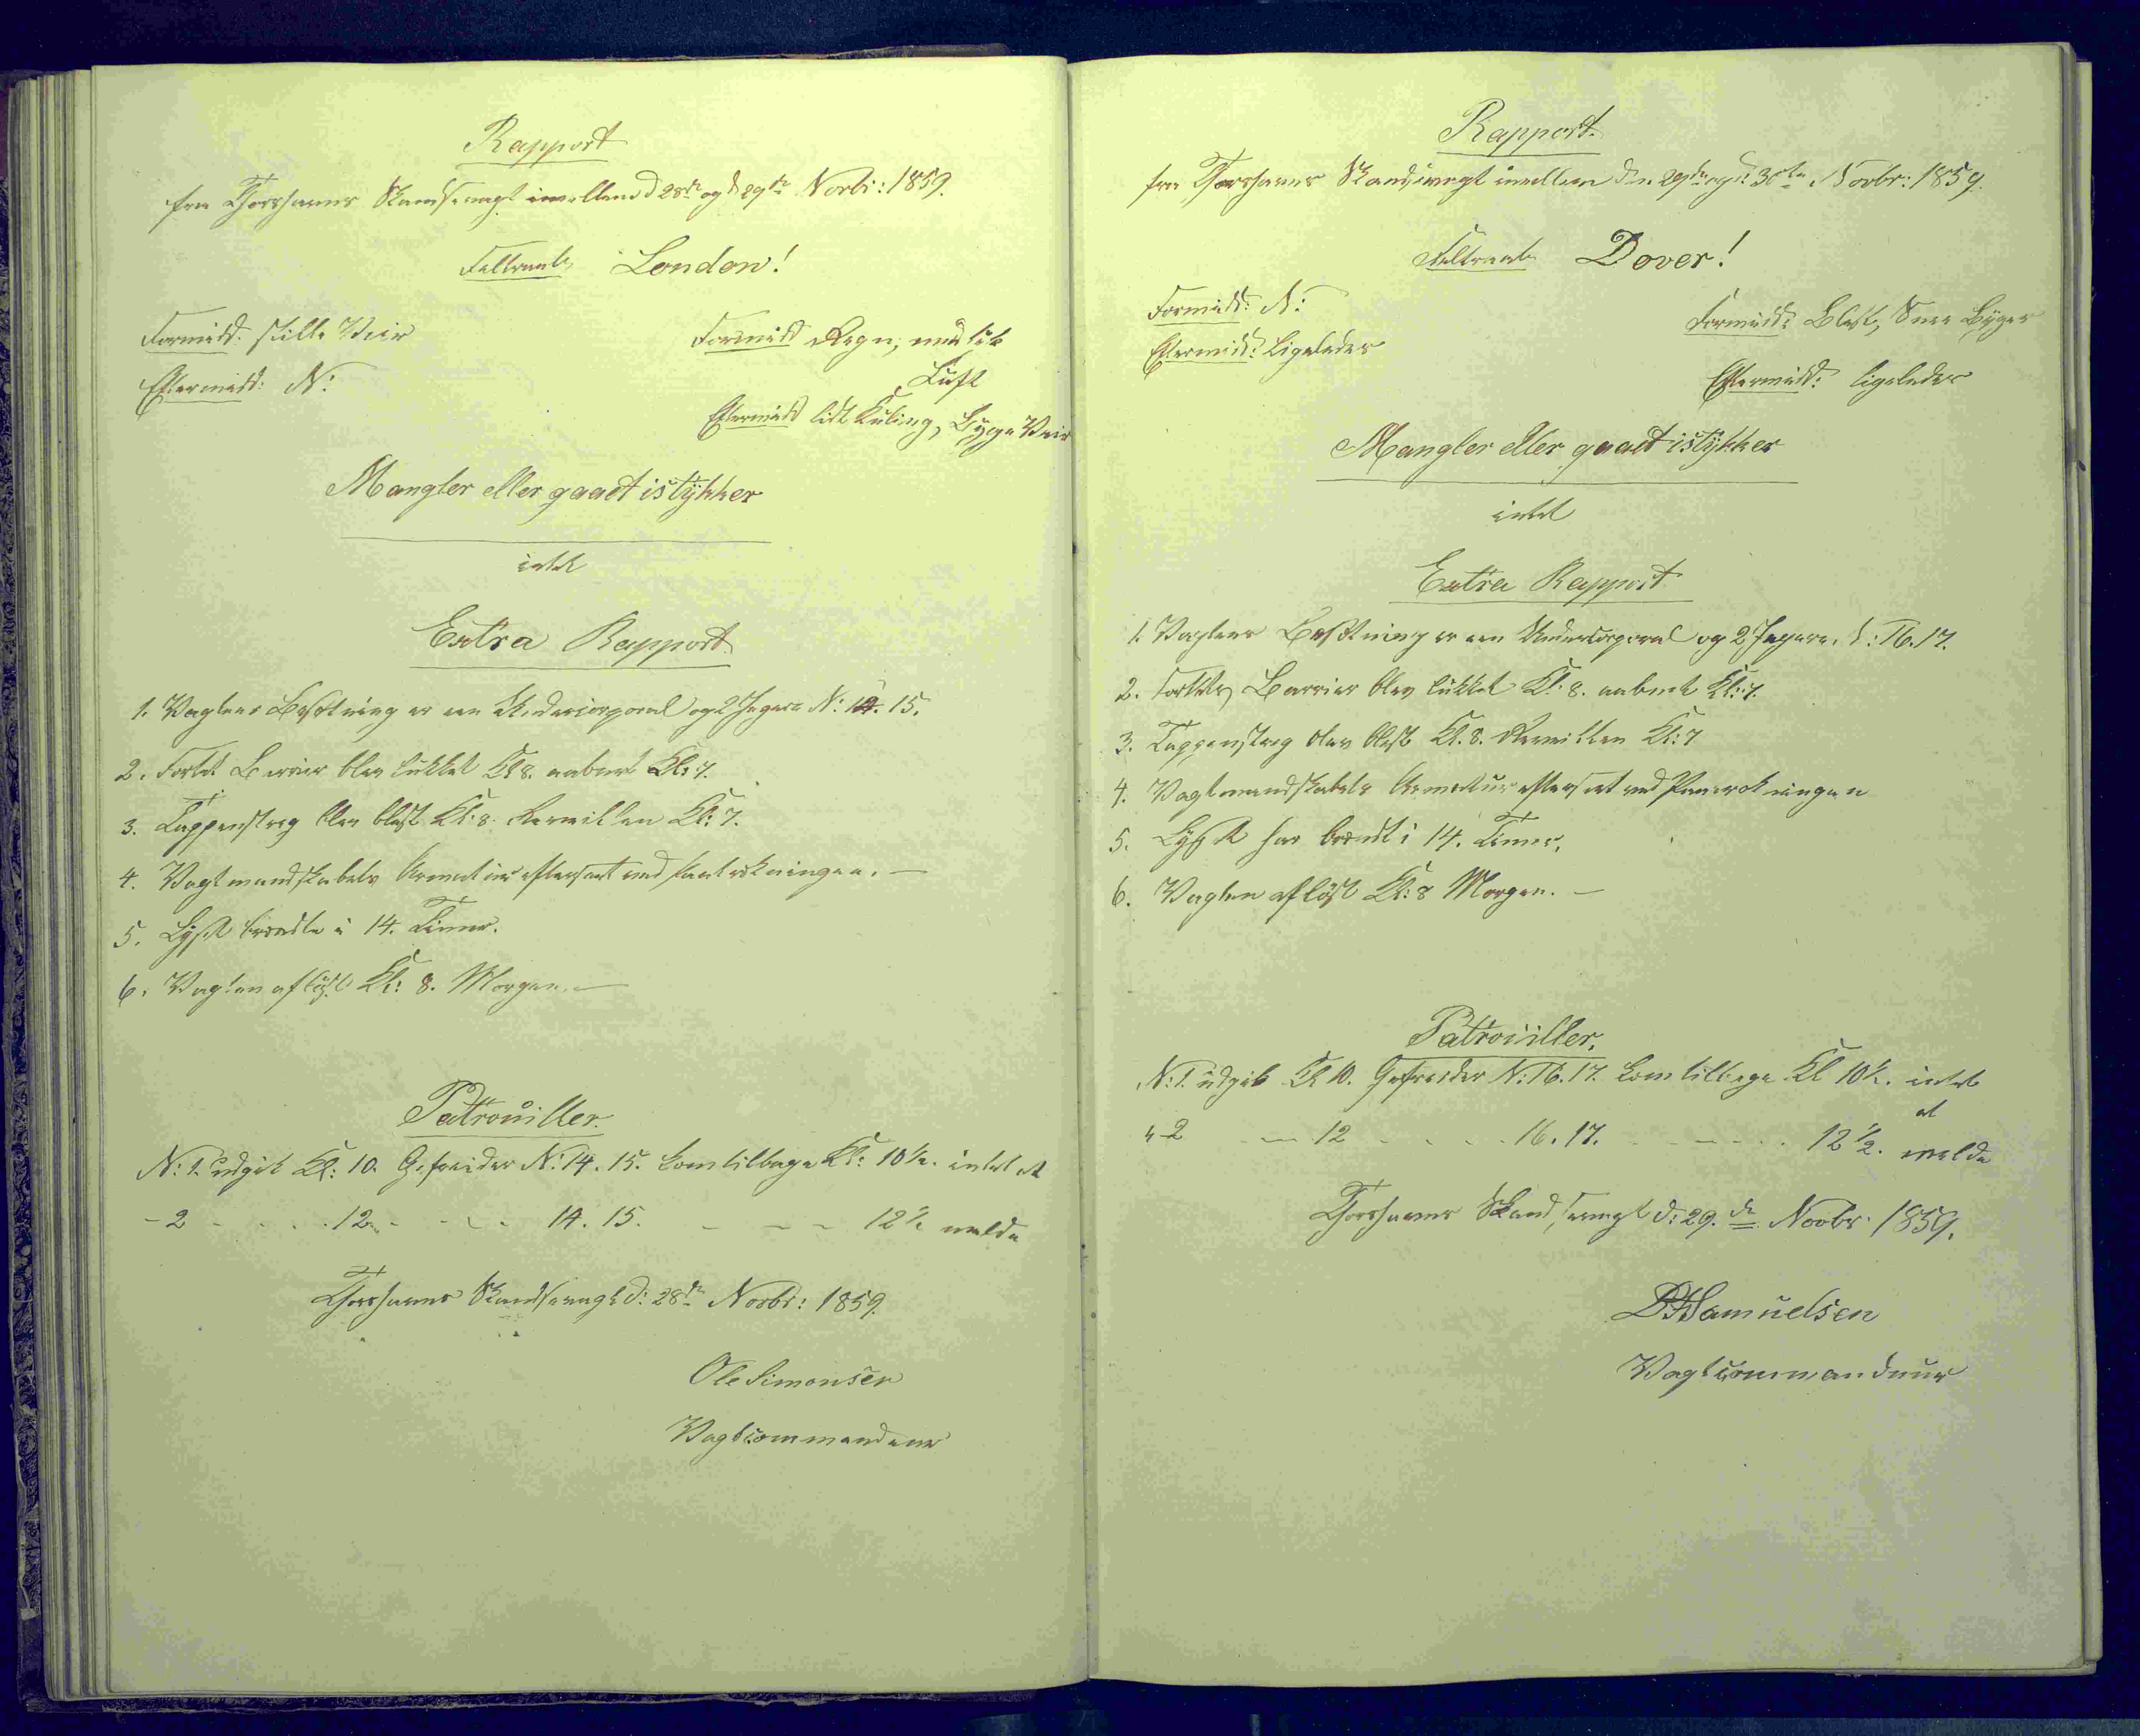 Rapport
fra Thorshavns Skandsevagt imellem d 28de og d 29de Novbr: 1859.
Feltraab London!
Formidd: stille Veir
Eftermidd: N:
Formidd Regn, med tik
Luft
Eftermidd lidt Kuling, Byge Veir
Mangler eller gaaet istÿkker
intet
Extra Rapport
1. Vagtens Besætning er een Undercorporal og 2 Jægere N: 14. 15.
2. Fortets Barrier blev lukket Kl 8. aabnet Kl: 7.
3. Tappenstreg blev blæst Kl: 8. Reveillen Kl: 7.
4. Vagtmandskabets Armatur efterseet ved Paatrækningen. —
5. Lyset brændte i 14. Timer.
6. Vagten aflöst Kl: 8. Morgen. —
Patrouiller.
N: 1. udgik Kl: 10. Gefreider N: 14. 15. kom tilbage Kl: 10½. intet at
- 2 - - - 12 - - - 14. 15. - - - 12½ melde
Thorshavns Skandsevagt d: 28de Novbr: 1859.
Ole Simonsen
Vagtcommandeur
Rapport.
fra Thorshavns Skandsevagt imellem den 29de og d: 30te Novbr: 1859.
Feltraab Dover!
Formidd: N:
Eftermidd: Ligeledes
Formidd: Blæst, Snee Byger
Eftermidd: ligeledes
Mangler eller gaaet istÿkker
intet
Extra Rapport
1. Vagtens Besætning er een Undercorporal og 2 Jægere. N: 16. 17.
2. Fortets Barrier blev lukket Kl: 8. aabnet Kl: 7.
3. Tappenstreg blev blæst Kl. 8. Reveillen Kl: 7
4. Vagtmandskabets Armatur efterseet ved Paatrækningen
5. Lyset har brændt i 14. Timer.
6. Vagten aflöst Kl: 8 Morgen. —
Patrouiller.
N: 1. udgik Kl 10. Gefreider N: 16. 17. kom tilbage Kl 10½. intet
at
" 2 — 12 - - - 16. 17. - - - 12½. melde
Thorshavns Skandsevagt d: 29.de Novbr 1859.
Samuelsen
Vagtcommandeur